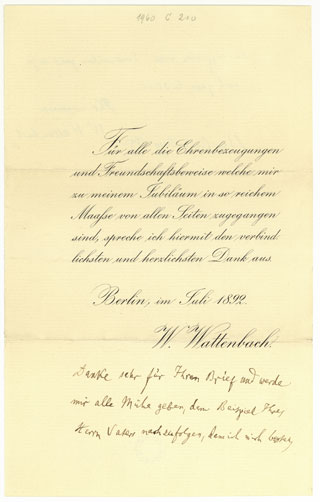 1960 C 210
Für alle die Ehrenbezeugungen
und Freundschaftsbeweise welche mir
zu meinem Jubiläum in so reichem
Maaße von allen Seiten zugegangen
sind, spreche ich hiermit den verbind
lichsten und herzlichsten Dank aus.
Berlin, im Juli 1892.
W. Wattenbach.
Danke sehr für Ihren Brief und werde
mir alle Mühe geben, dem Beispiel Ihres
Herrn Vaters nachzufolgen, den ich